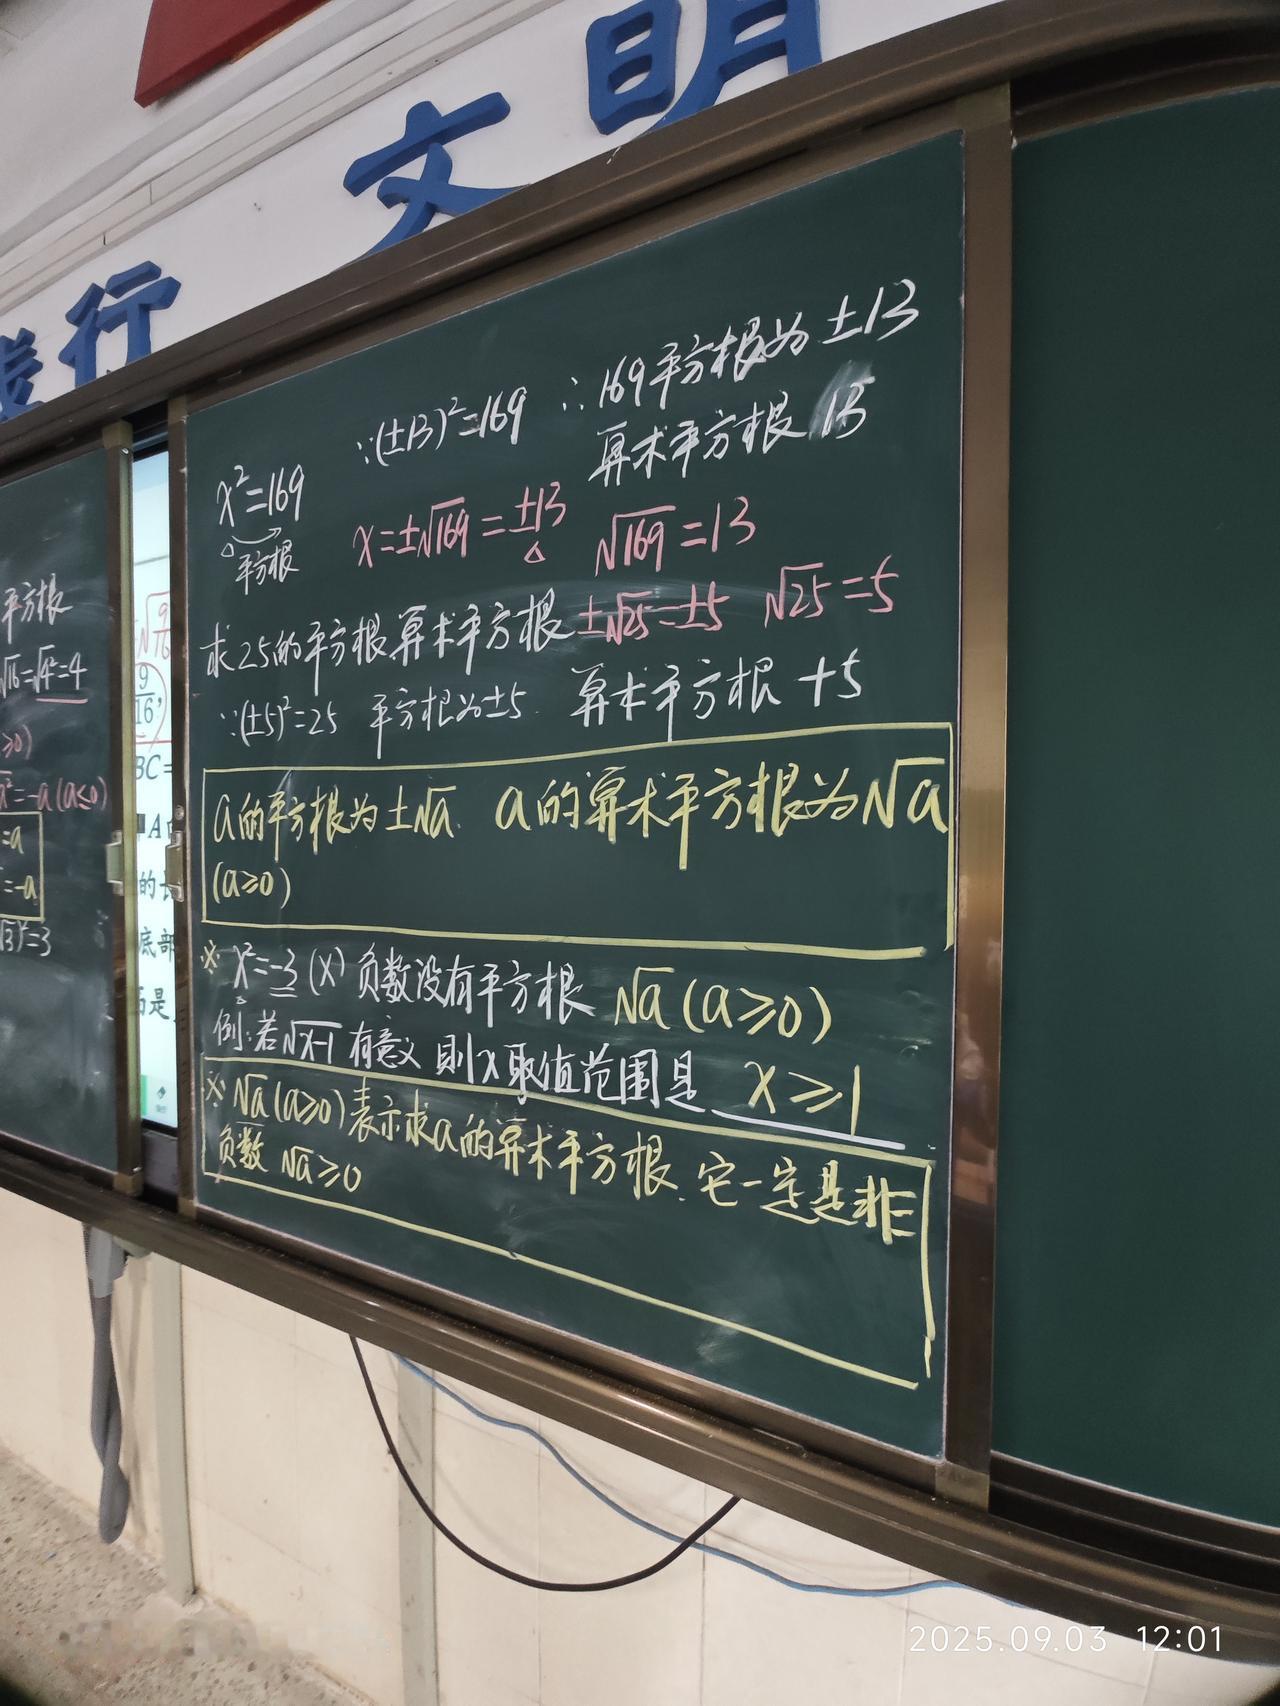 文明
行
∵(±13)²=169 ∴169平方根为±13
算术平方根 13
x²=169
平方根
x=±√169=±13 √169=13
求25的平方根算术平方根 ±√25=±5 √25=5
∵(±5)²=25 平方根为±5. 算术平方根 +5
a的平方根为±√a. a的算术平方根为√a
(a≥0)
※ x²=-3 (x) 负数没有平方根 √a (a≥0)
例:若√x-1 有意义 则x取值范围是 x≥1
※ √a (a≥0) 表示求a的算术平方根. 它一定是非
负数 √a≥0
平方根
√16=√4²=4
≥0)
²=-a (a≤0)
=a
=-a
√3)²=3
9
16
BC=
A
的长
底部
是
2025.09.03 12:01